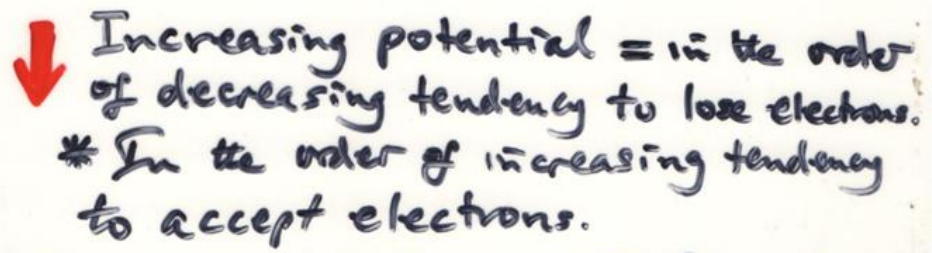 Increasing potential = in the order
of decreasing tendency to lose electrons.
* In the order of increasing tendency
to accept electrons.